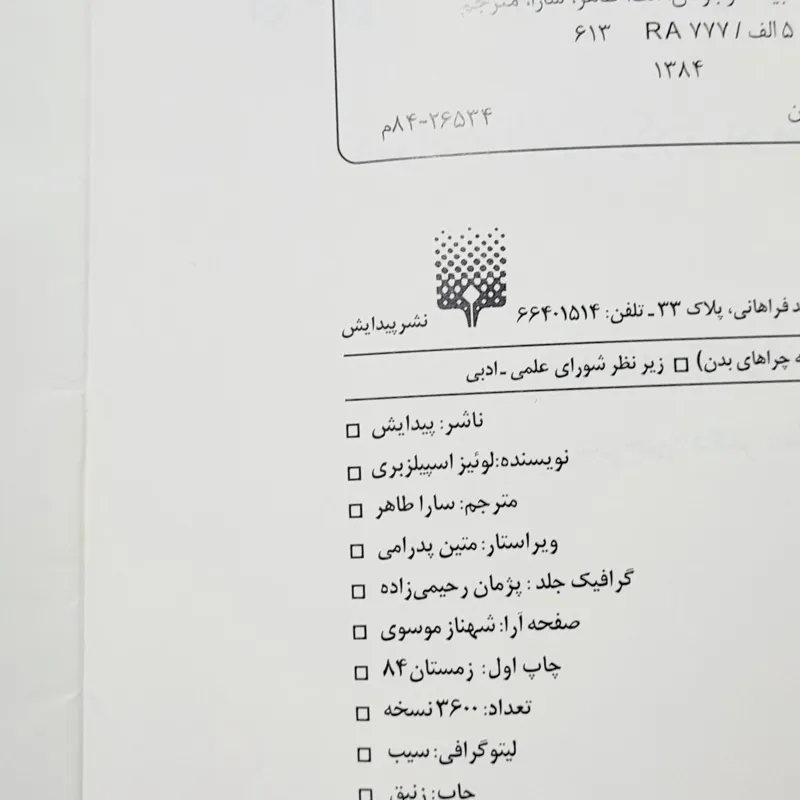 طاهر، سارا، مترجم
۵ الف / RA ۷۷۷ ۶۱۳
۱۳۸۴
۸۴-۲۶۵۳۴م
فراهانی، پلاک ۳۳ ـ تلفن: ۶۶۴۰۱۵۱۴
نشر پیدایش
چراهای بدن) □ زیر نظر شورای علمی ـ ادبی
ناشر: پیدایش □
نویسنده: لوئیز اسپیلزبری □
مترجم: سارا طاهر □
ویراستار: متین پدرامی □
گرافیک جلد : پژمان رحیمی‌زاده □
صفحه آرا: شهناز موسوی □
چاپ اول: زمستان ۸۴ □
تعداد: ۳۶۰۰ نسخه □
لیتوگرافی: سیب □
چاپ: زنبق □